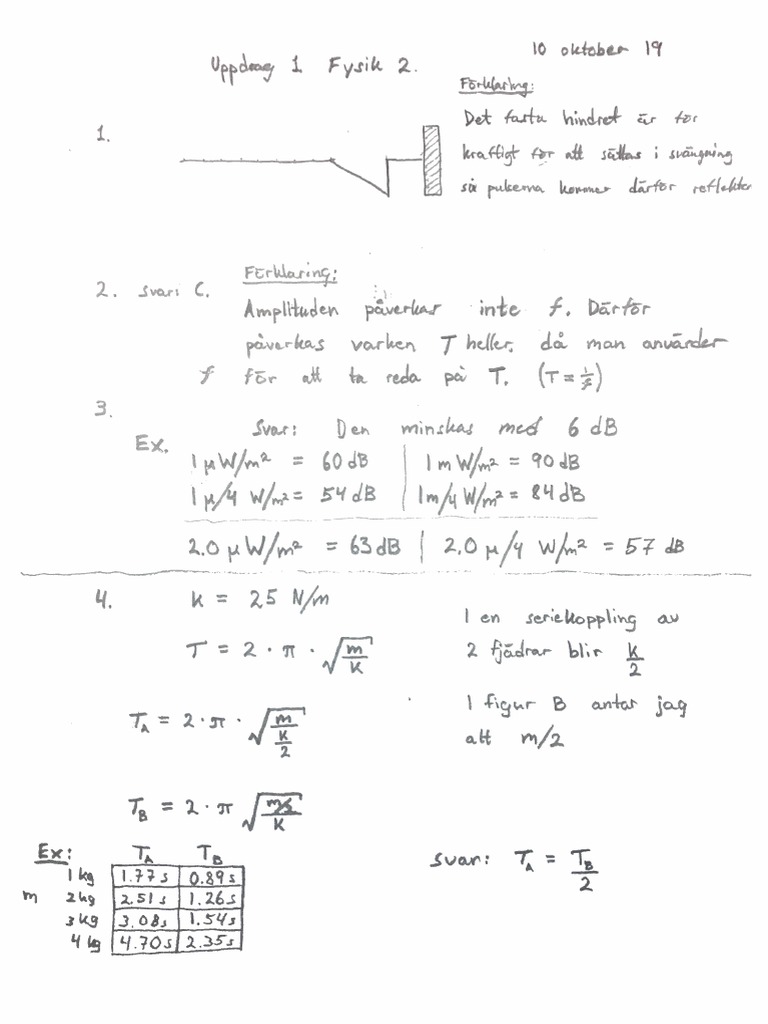 10 oktober 19
Uppdrag 1 Fysik 2.
Förklaring:
1.
Det fasta hindret är för
kraftigt för att sättas i svängning
så pulserna kommer därför reflekter
2. svar: C.
Förklaring:
Amplituden påverkar inte f. Därför
påverkas varken T heller, då man använder
f för att ta reda på T. (T = 1/f)
3.
Svar: Den minskas med 6 dB
Ex.
1 μW/m² = 60 dB | 1 mW/m² = 90 dB
1 μ/4 W/m² = 54 dB | 1m/4 W/m² = 84 dB
2.0 μW/m² = 63 dB | 2.0 μ/4 W/m² = 57 dB
4. k = 25 N/m
T = 2 · π · √(m/k)
T_A = 2 · π · √(m/(k/2))
T_B = 2 · π √((m/2)/k)
I en seriekoppling av
2 fjädrar blir k/2
I figur B antar jag
att m/2
Ex: T_A T_B
1 kg 1.77 s 0.89 s
m 2 kg 2.51 s 1.26 s
3 kg 3.08 s 1.54 s
4 kg 4.70 s 2.35 s
svar: T_A = T_B/2